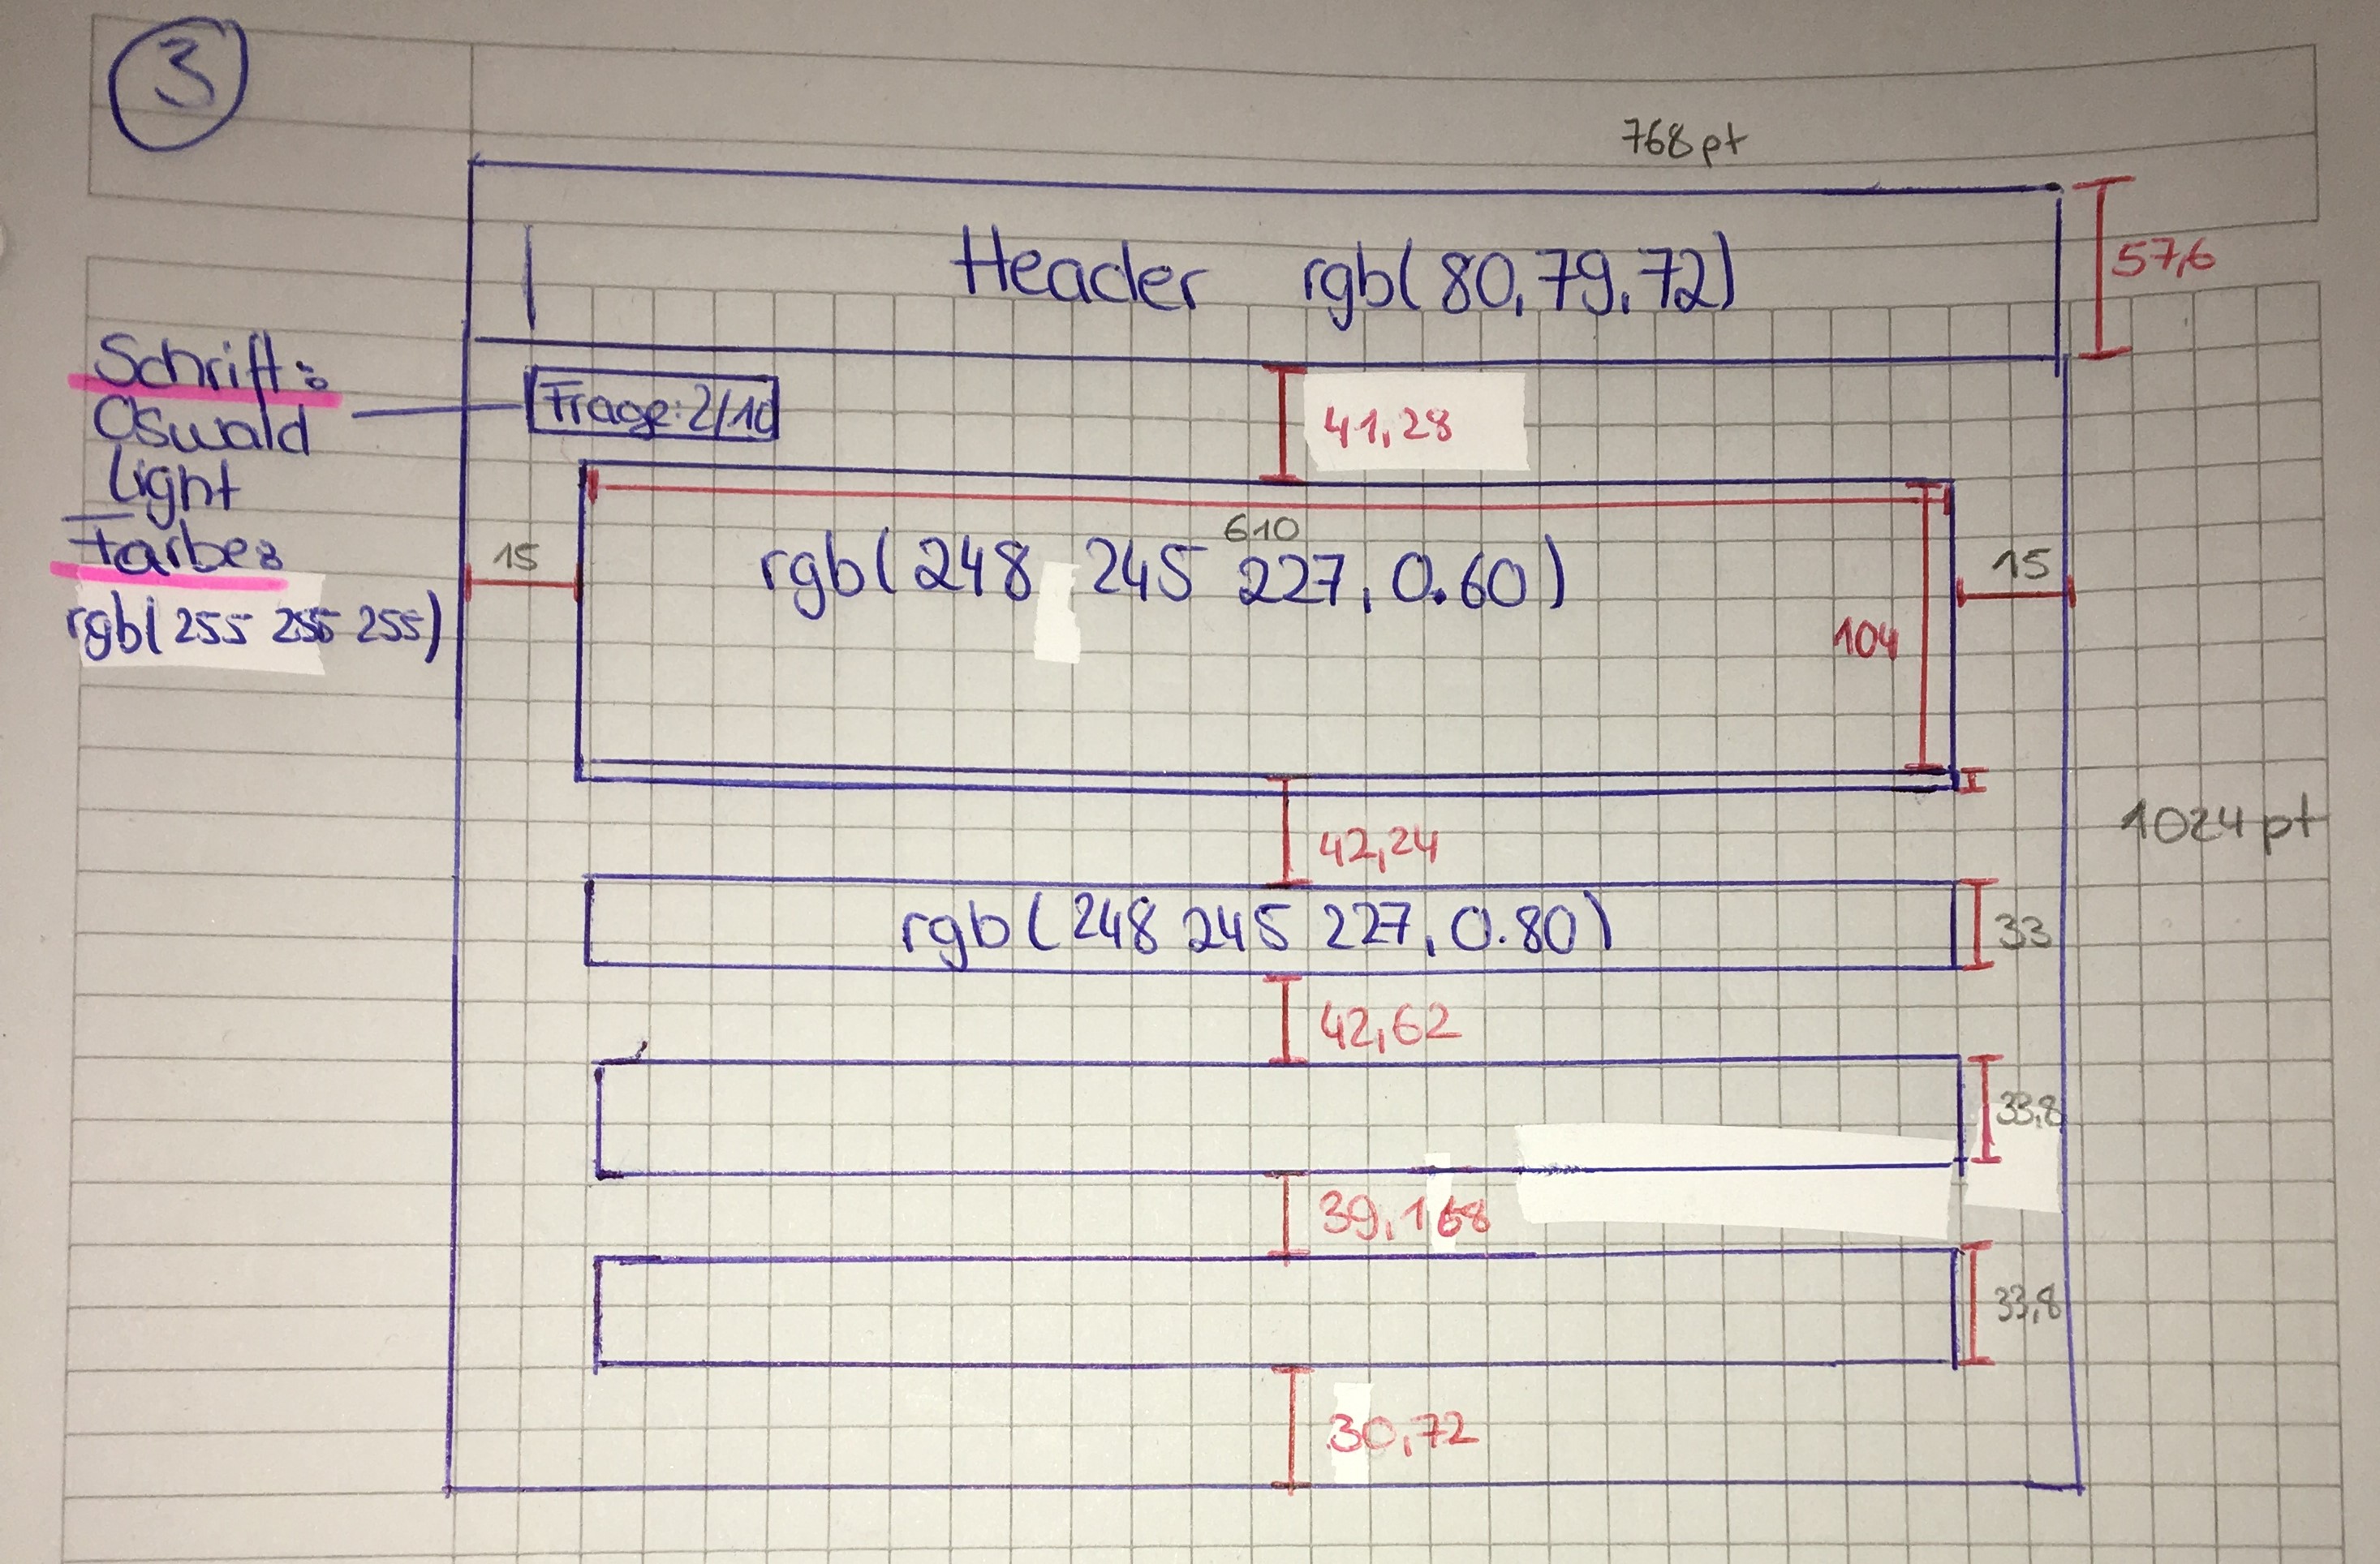 3
768pt
Header rgb(80,79,72)
57,6
Schrift:
Oswald
Light
Farbe:
rgb(255 255 255)
Frage:2/10
41,28
610
15
rgb(248, 245 227, 0.60)
15
104
1024pt
42,24
rgb(248 245 227, 0.80)
33
42,62
33,8
39,168
33,8
30,72